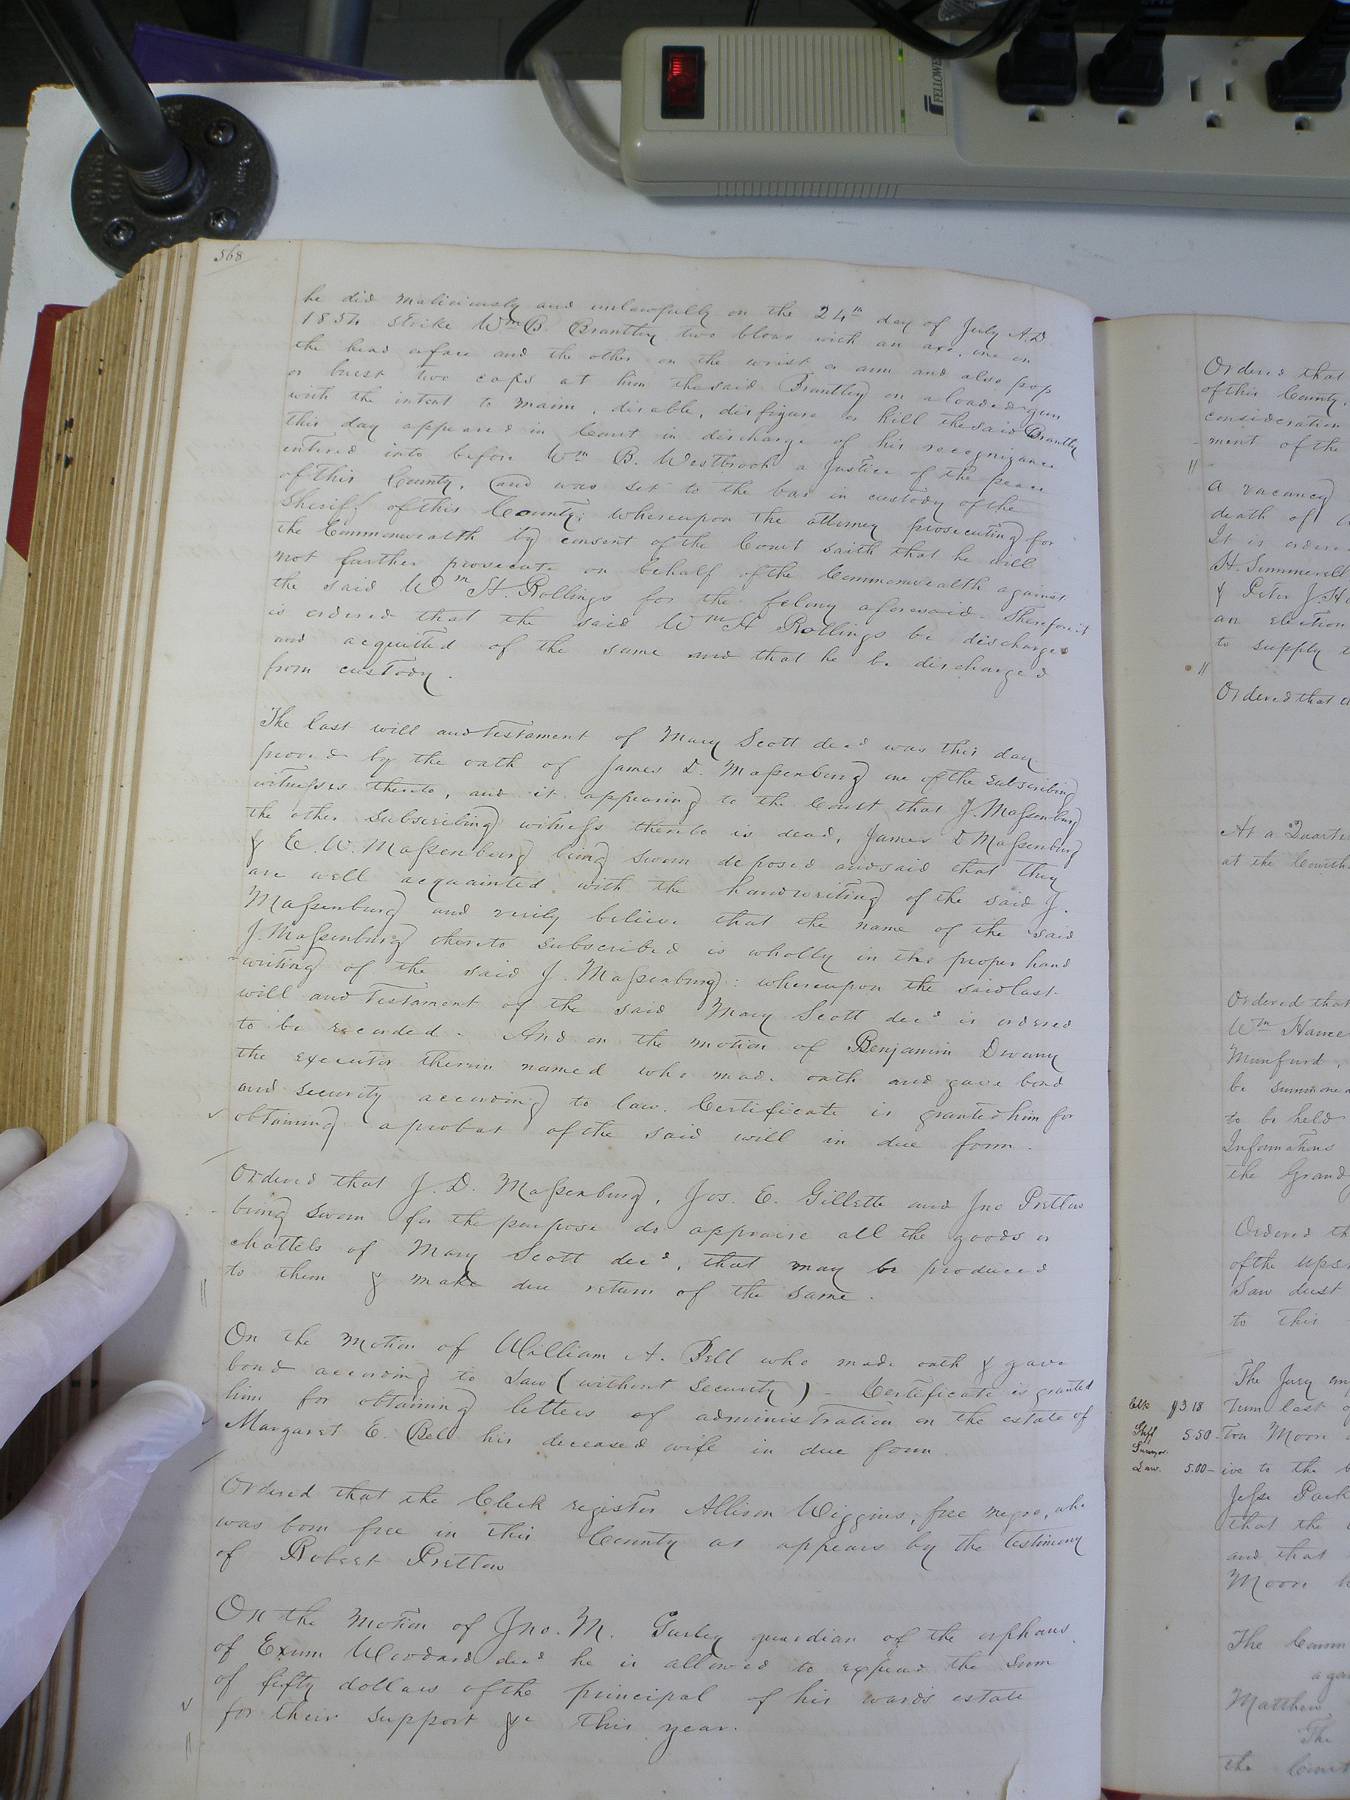 FELLOWES
568
he did maliciously and unlawfully on the 24th day of July A.D.
1854 strike Wm B. Brantley two blows with an axe, one on
the head or face and the other on the wrist or arm and also pop
or burst two caps at him the said Brantley on a loaded gun
with the intent to maim, disable, disfigure or kill the said Brantley
this day appeared in Court in discharge of his recognizance
entered into before Wm B. Westbrook a Justice of the peace
of this County, and was set to the bar in custody of the
Sheriff of this County; whereupon the attorney prosecuting for
the Commonwealth by consent of the Court saith that he will
not further prosecute on behalf of the Commonwealth against
the said Wm H. Rollings for the felony aforesaid. Therefore it
is ordered that the said Wm H Rollings be discharged
and acquitted of the same and that he be discharged
from custody.
The last will and testament of Mary Scott decd was this day
proved by the oath of James D. Massenburg one of the subscribing
witnesses thereto, and it appearing to the Court that J. Massenburg
the other subscribing witness thereto is dead, James D Massenburg
& E. W. Massenburg being sworn deposed and said that they
are well acquainted with the handwriting of the said J.
Massenburg and verily believe that the name of the said
J. Massenburg thereto subscribed is wholly in the proper hand
writing of the said J. Massenburg: whereupon the said last
will and testament of the said Mary Scott decd is ordered
to be recorded. And on the motion of Benjamin Devany
the executor therein named who made oath and gave bond
and security according to law. Certificate is granted him for
obtaining a probat of the said will in due form.
Ordered that J. D. Massenburg, Jos. E. Gillette and Jno Pretlow
being sworn for the purpose do appraise all the goods or
chattels of Mary Scott decd, that may be produced
to them & make due return of the same.
On the motion of William A. Bell who made oath & gave
bond according to law (without security) - Certificate is granted
him for obtaining letters of administration on the estate of
Margaret E. Bell his deceased wife in due form.
Ordered that the Clerk register Allison Wiggins, free negro, who
was born free in this County as appears by the testimony
of Robert Pretlow
On the motion of Jno. M. Gurley guardian of the orphans
of Exum Woodard decd he is allowed to expend the sum
of fifty dollars of the principal of his wards estate
for their support &c this year.
Ordered that
of this County,
consideration
ment of the
a vacancy
death of
It is ordered
H. Summerell
& Peter J. H
an election
to supply
Ordered that
At a Quarte
at the Courth
Ordered that
Wm Hance
Munford,
be summoned
to be held
Informations
the Grand
Ordered th
of the ups
Saw dust
to this
The Jury
Clk $3.18 Term last
Shff 5.50 ton Moore
Surveyor
Law. 5.00 ive to the
Jesse Park
that the
and that
Moore
The Comm
aga
Matthew
The
the Court